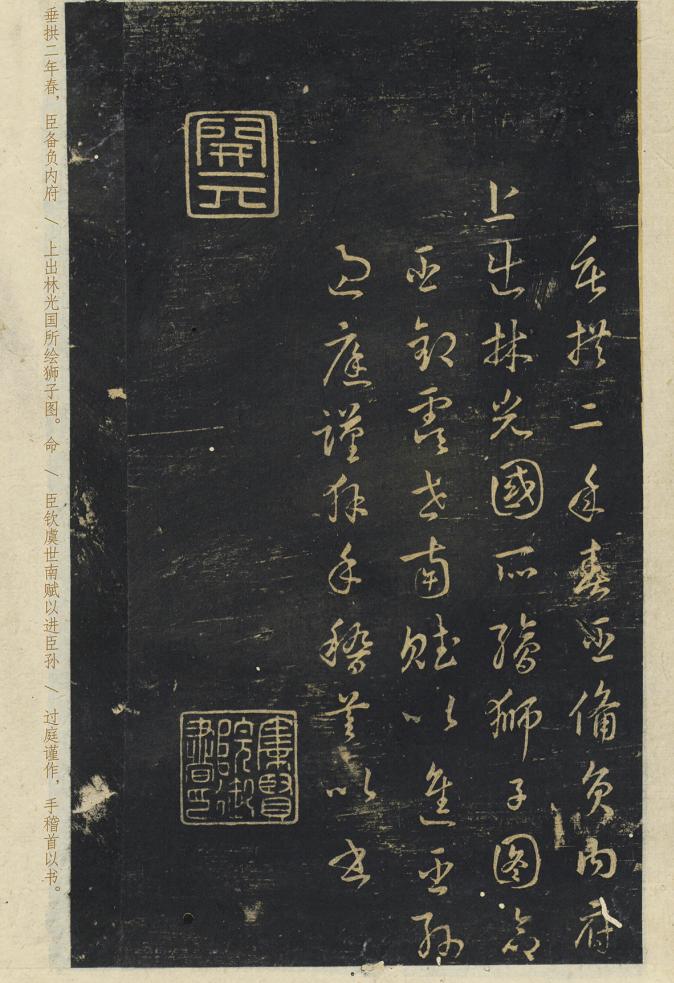 垂拱二年春臣備負内府
上出林光國所繪獅子图命
臣欽虞世南賦以進臣孫
過庭謹作手稽首以書
開元
集賢院御書印
垂拱二年春，臣备负内府 \ 上出林光国所绘狮子图。命 \ 臣钦虞世南赋以进臣孙 \ 过庭谨作，手稽首以书。